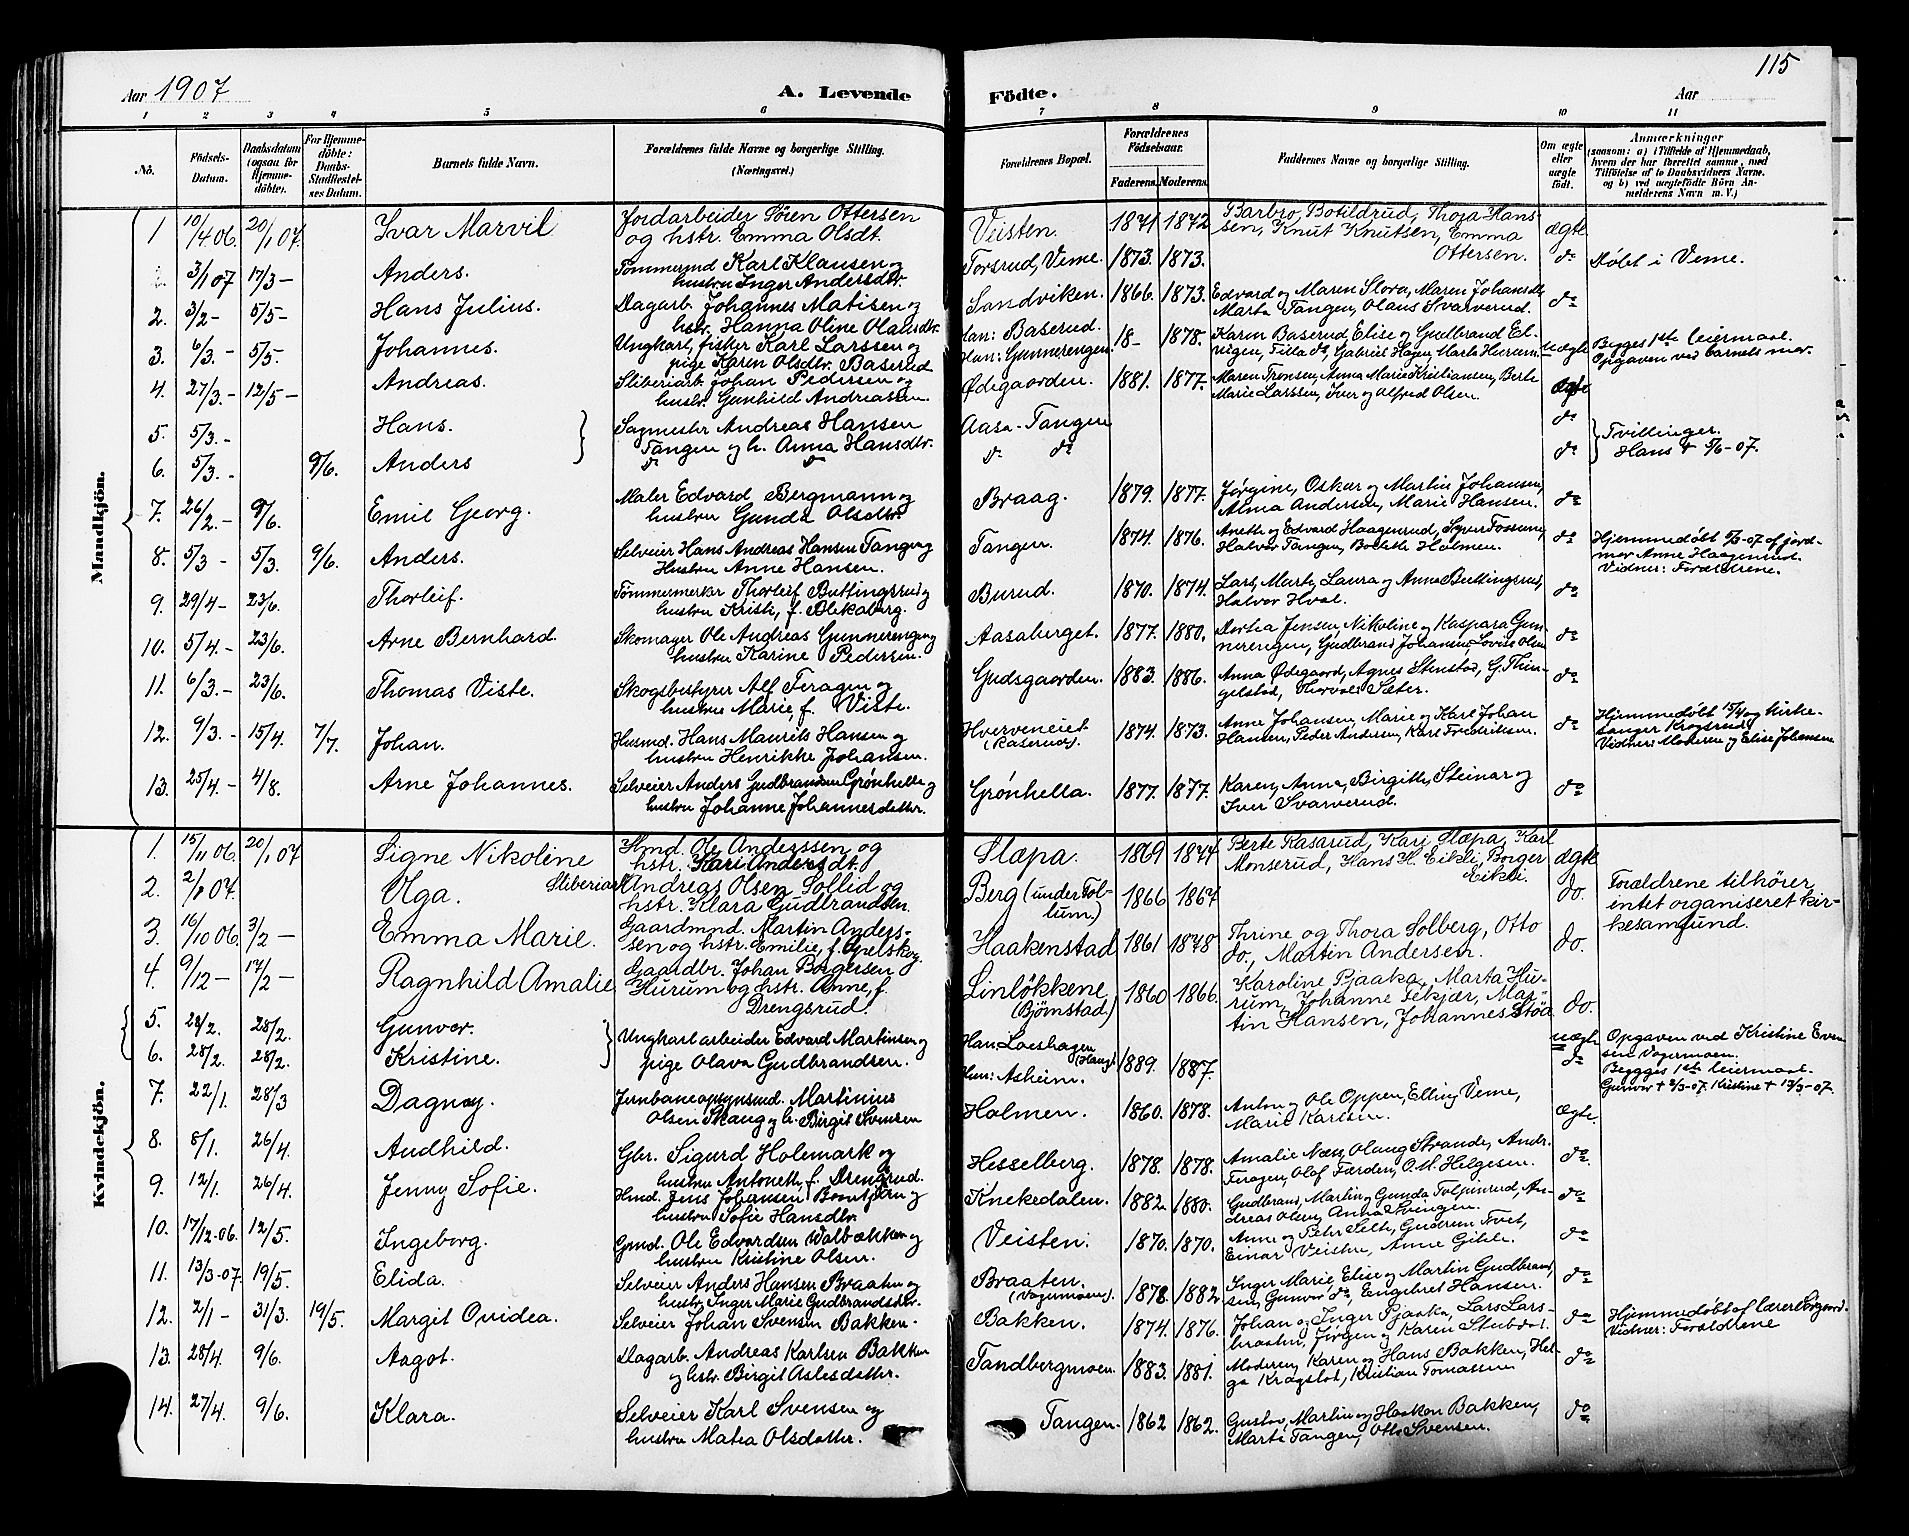 115
Aar 1907
A. Levende
Födte.
Aar
1 2 3 4 5 6 7 8 9 10 11
No.
Födsels-Datum.
Daabsdatum (ogsaa for Hjemme-döbte).
For Hjemme-döbte: Daabs-Stadfæstel-ses Datum.
Barnets fulde Navn.
Forældrenes fulde Navne og borgerlige Stilling. (Næringsvei.)
Forældrenes Bopæl.
Forældrenes Födselsaar.
Faderens. Moderens.
Faddernes Navne og borgerlige Stilling.
Om ægte eller uægte födt.
Anmærkninger
(saasom: a) i Tilfælde af Hjemmedaab, hvem der har forrettet samme, med Tilföielse af to Daabsvidners Navne. og b) ved uægtefödte Börn An-melderens Navn m. V.)
Mandkjön.
1 10/4 06. 20/1 07. Ivar Marvil Jordarbeider Sören Ottersen og hstr. Emma Olsdt. Veisten. 1871 1872 Barbro, Botildrud, Thoja Hans-sen, Knut Knutsen, Emma Ottersen. ægte
3/1 07 17/3- Anders. Tömmermd Karl Klausen og hustru Inger Andersdtr. Torsrud, Veme. 1873. 1873. do Döbt i Veme.
2. 3/2- 5/5- Hans Julius. Dagarb. Johannes Matisen og hstr. Hanna Oline Olausdtr. Sandviken. 1866. 1873. Edvard og Maren Slora, Maren Johansdtr, Marta Tangen, Olaus Svarverud. do
3. 6/3.- 5/5. Johannes. Ungkarl, fisker Karl Larssen og pige Karen Olsdtr. Baserud Han: Baserud. Hun: Gunnerengen. 18- 1878. Karen Baserud, Elise og Gudbrand El-vigen, Tilla do, Gabriel Hagen, Marte Hurum. uægte Begges 1ste leiermaal. Opgaven ved barnets mor.
4. 27/3.- 12/5- Andreas. Sliberiarb. Johan Pedersen og hustr. Gunhild Andreassen. Ødegaarden. 1881. 1877. Maren Trönsen, Anna Marie Kristiansen, Berte Marie Larssen, Iver og Alfred Olsen. ægte
5. 5/3.- Hans. Sagmester Andreas Hansen Tangen og h. Anna Hansdtr. Aasa-Tangen do Tvillinger.
6. 5/3.- 9/6. Anders do do do do do Hans + 5/6-07.
7. 26/2.- 9/6. Emil Georg. Maler Edvard Bergmann og hustru Gunda Olsdtr. Braag. 1879. 1877. Jørgine, Oskar og Martin Johansen, Alma Andersen, Marie Hansen. do
8. 5/3- 5/3. 9/6. Anders. Selveier Hans Andreas Hansen Tangen og Hustru Anne Hansen. Tangen. 1874. 1876. Anette og Edvard Haagenrud, Syver Fossum, Halvor Tangen, Bolette Holmen. do Hjemmedöbt 5/3-07 af jord-mor Anne Haagensrud. Vidner: Forældrene.
9. 29/4- 23/6. Thorleif. Tömmermerker Thorleif Buttingsrud og hustru Kristi, f. Blekaberg. Burud. 1870. 1874. Lars, Marte, Laura og Anna Buttingsrud, Halvor Hval. do
10. 5/4.- 23/6. Arne Bernhard. Skomager Ole Andreas Gunnerengen og hustru Karine Pedersen. Aasaberget. 1877. 1880. Dortea Jensen, Nikoline og Kaspara Gun-nerengen, Gudbrand Johansen, Lovise Olsen do
11. 6/3.- 23/6. Thomas Viste. Skogsbestyrer Alf Feragen og hustru Marie, f. Viste. Gudsgaarden. 1883. 1886. Anna Ødegaard, Agnes Stenstad, G. Thin-gelstad, Thorvald Sæter. do
12. 9/3.- 15/4. 7/7. Johan. Husmd. Hans Maurits Hansen og hustru Henrikke Johansen. Hverveneiet 1874. 1873. Anne Johansen, Marie og Karl Johan Hansen, Peder Andersen, Karl Fredriksen. do Hjemmedöbt 15/4 og kirke-sanger Krogsrud. Vidner: Moderen og Elise Johansen
13. 25/4.- 4/8. Arne Johannes. Selveier Anders Gudbrandsen Grönhella og hustru Johanne Johannesdatter. Grönhella. 1877. 1877. Karen, Anna, Birgitte, Steinar og Iver Svarverud. do
Kvindekjön.
1. 15/11 06. 20/1 07 Signe Nikoline Hmd. Ole Anderssen og hstr. Kari Andersdt. Slæpa. 1869 1874 Berte Rasarud, Kari Slæpa, Karl Monserud, Hans H. Eikli, Borger Eikli. ægte
2. 2/1 07. Olga. Sliberiarb. Andreas Olsen Sollid og hstr. Klara Gudbrandsen. Berg (under Fol-lum.) 1866 1867 do. Forældrene tilhörer intet organiseret kir-kesamfund.
3. 16/10 06. 3/2- Emma Marie. Gaardmnd. Martin Anders-sen og hstr. Emilie, f. Opelskog. Haakenstad 1861 1878 Thrine og Thora Solberg, Otto do, Martin Andersen. do.
4. 9/12- 17/2- Ragnhild Amalie Gaardbr. Johan Borgersen Hurum og hstr. Anne, f. Drengsrud. Linlökkene (Björnstad) 1860 1866. Karoline Pjaaka, Marta Hu-rum, Johanne Fekjær, Mar-tin Hansen, Johannes Stöa do.
5. 28/2. 28/2. Gunvor. Ungkarl arbeider Edvard Martinsen og pige Olava Gudbrandsen. Han: Loeshagen (Haug) Hun: Asheim. 1889. 1887. uægte Opgaven ved Kristine Even-sen Vagermoen. Begges 1ste leiermaal.
6. 28/2. 28/2. Kristine. do Gunvor + 8/3-07. Kristine + 13/3-07.
7. 22/1. 28/3 Dagny. Jernbaneopsynsmd. Martinius Olsen Skaug og h. Birgit Svensen Holmen. 1860. 1878. Anton og Ole Oppen, Elling Veme, Marie Karlsen. ægte.
8. 8/1. 26/4. Audhild. Gbr. Sigurd Holemark og hustru Antonette, f. Drengsrud. Hesselberg. 1878. 1878. Amalie Næss, Olaug Strande, Andr. Feragen, Olaf Færden, O. M. Helgesen. do
9. 12/1. 26/4. Jenny Sofie. Hmd. Jens Johansen og hustru Sofie Hansdtr. Knekedalen. 1882 1880. Gudbrand, Martin og Gunda Toljenrud, An-dreas Olsen, Anna Svingen. do
10. 17/12-06. 12/5. Ingeborg. Gmd. Ole Edvardsen Walbækken og hustru Kristine Olsen. Veisten. 1870. 1870. Anne og Peter Selte, Gudrun Tvet, Einar Veisten, Anne Gihle. do
11. 13/3-07. 19/5. Elida. Selveier Anders Hansen Braaten og hustr. Inger Marie Gudbrandsdtr. Braaten. (Vagermoen). 1878 1882. Inger Marie, Elise og Martin Gudbrand-sen, Gunvor do, Engebret Hansen. do
12. 2/1- 31/3. 19/5. Margit Ovidea. Selveier Johan Svensen Bakken. Bakken. 1874. 1876. Johan og Inger Pjaaka, Lars Lars-braaten, Jörgen og Karen Stubdal. do Hjemmedöbt af lærer Sörgaard. Vidner: Forældrene
13. 28/4. 9/6. Aagot. Dagarb. Andreas Karlsen Bakken og hstr. Birgit Aslesdatter. Tandbergmoen. 1883. 1881. Moderen, Karen og Hans Bakken, Hel-ga Kragstad, Kristian Tomassen do
14. 27/4. 9/6. Klara. Selveier Karl Svensen og hustru Matea Olsdatter. Tangen. 1862 1862. Gustav, Martin og Haakon Bakken, Marte Tangen, Otto Svensen. do